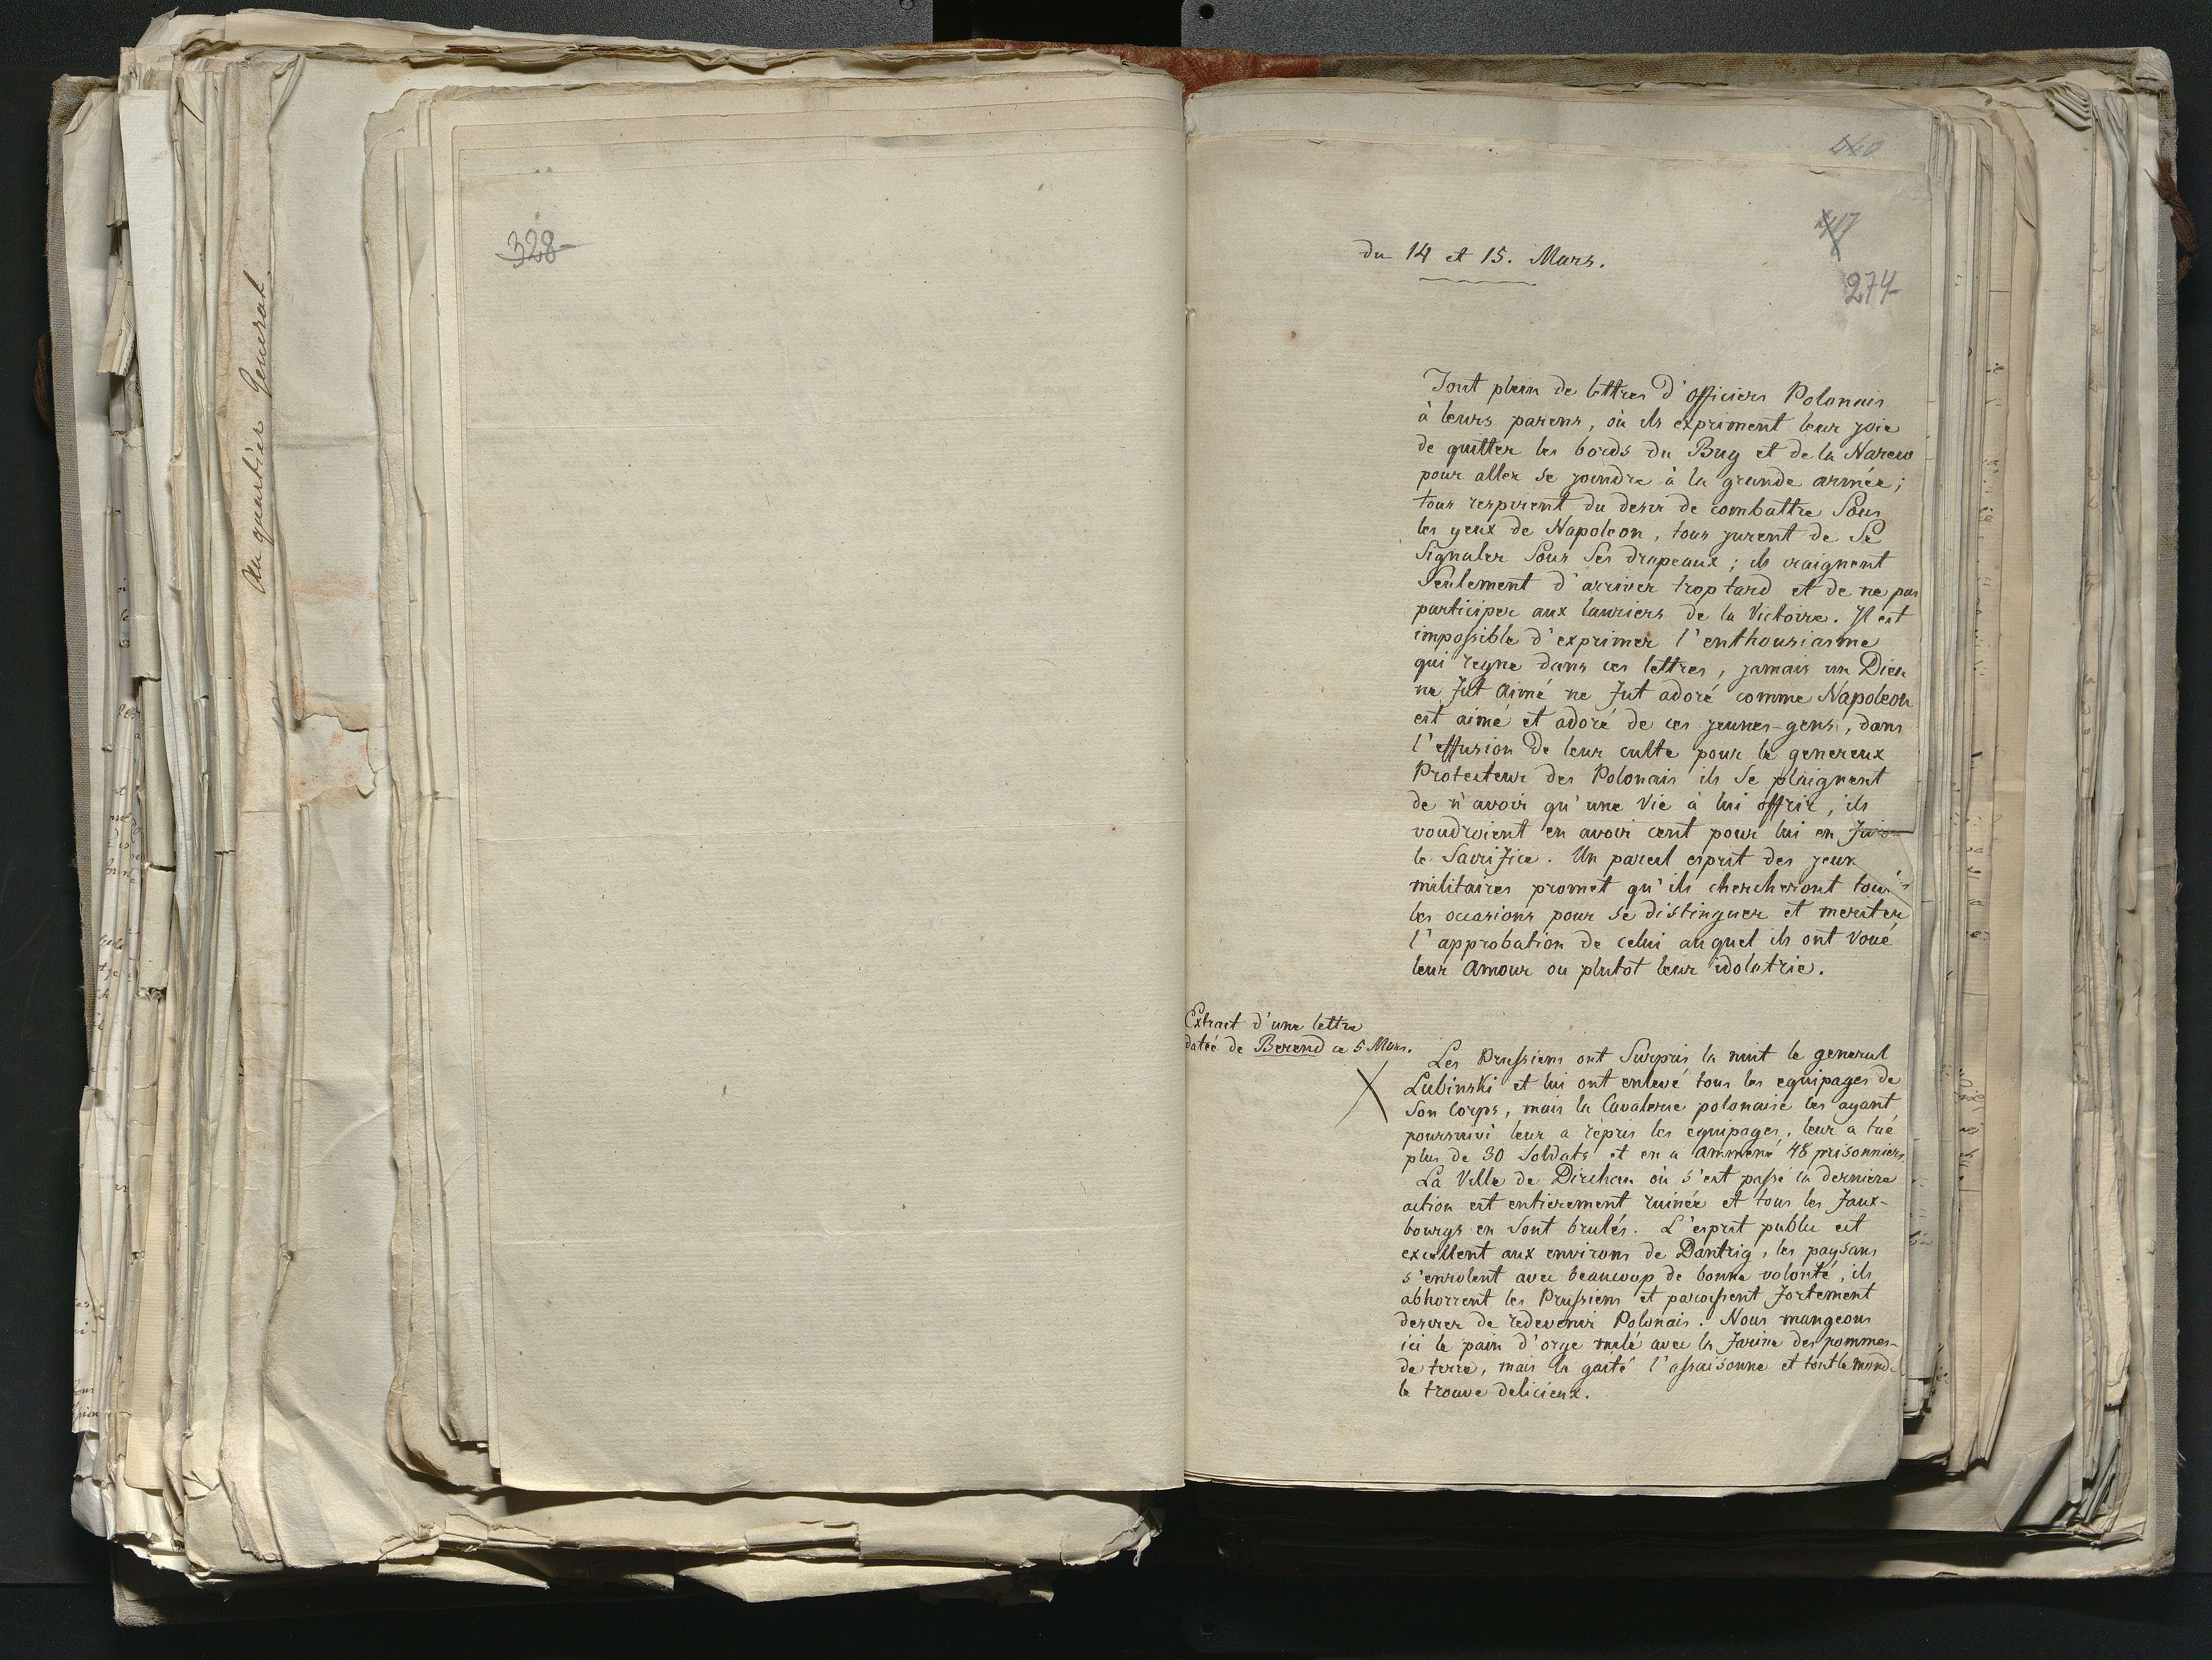 Au quartier General
328
du 14 et 15. Mars.
274
Tout plein de lettres d'officiers Polonais
à leurs parens, où ils expriment leur joie
de quitter les bords du Bug et de la Narew
pour aller se joindre à la grande armée;
tous respirent du desir de combattre Sous
les yeux de Napoleon, tous jurent de Se
Signaler Sous Ses drapeaux; ils craignent
Seulement d'arriver trop tard et de ne pas
participer aux lauriers de la Victoire. Il est
impossible d'exprimer l'enthousiasme
qui regne dans ces lettres, jamais un Dieu
ne fut aimé ne fut adoré comme Napoleon
est aimé et adoré de ces jeunes-gens, dans
l'effusion de leur culte pour le genereux
Protecteur des Polonais ils Se plaignent
de n'avoir qu'une Vie à lui offrir, ils
voudroient en avoir cent pour lui en
le Sacrifice. Un pareil esprit des jeux
militaires promet qu'ils chercheront
les occasions pour se distinguer et meriter
l'approbation de celui auquel ils ont Voué
leur Amour ou plutot leur idolatrie.
Extrait d'une lettre
datée de Berend ce 5 Mars.
Les Prussiens ont Surpris la nuit le general
Lubinski et lui ont enlevé tous les equipages de
Son Corps, mais la Cavalerie polonaise les ayant
poursuivi leur a repris les equipages, leur a tué
plus de 30 Soldats et en a ammené 48 prisonniers.
La Ville de Dirchau où s'est passé la derniere
action est entierement ruinée et tous les faux-
bourgs en Sont brulés. L'esprit public est
excellent aux environs de Dantzig, les paysans
s'enrolent avec beaucoup de bonne volonté, ils
abhorrent les Prussiens et paroissent fortement
desirer de redevenir Polonais. Nous mangeons
ici le pain d'orge melé avec la farine des pommes-
de terre, mais la gaité l'assaisonne et tout le monde
le trouve delicieux.